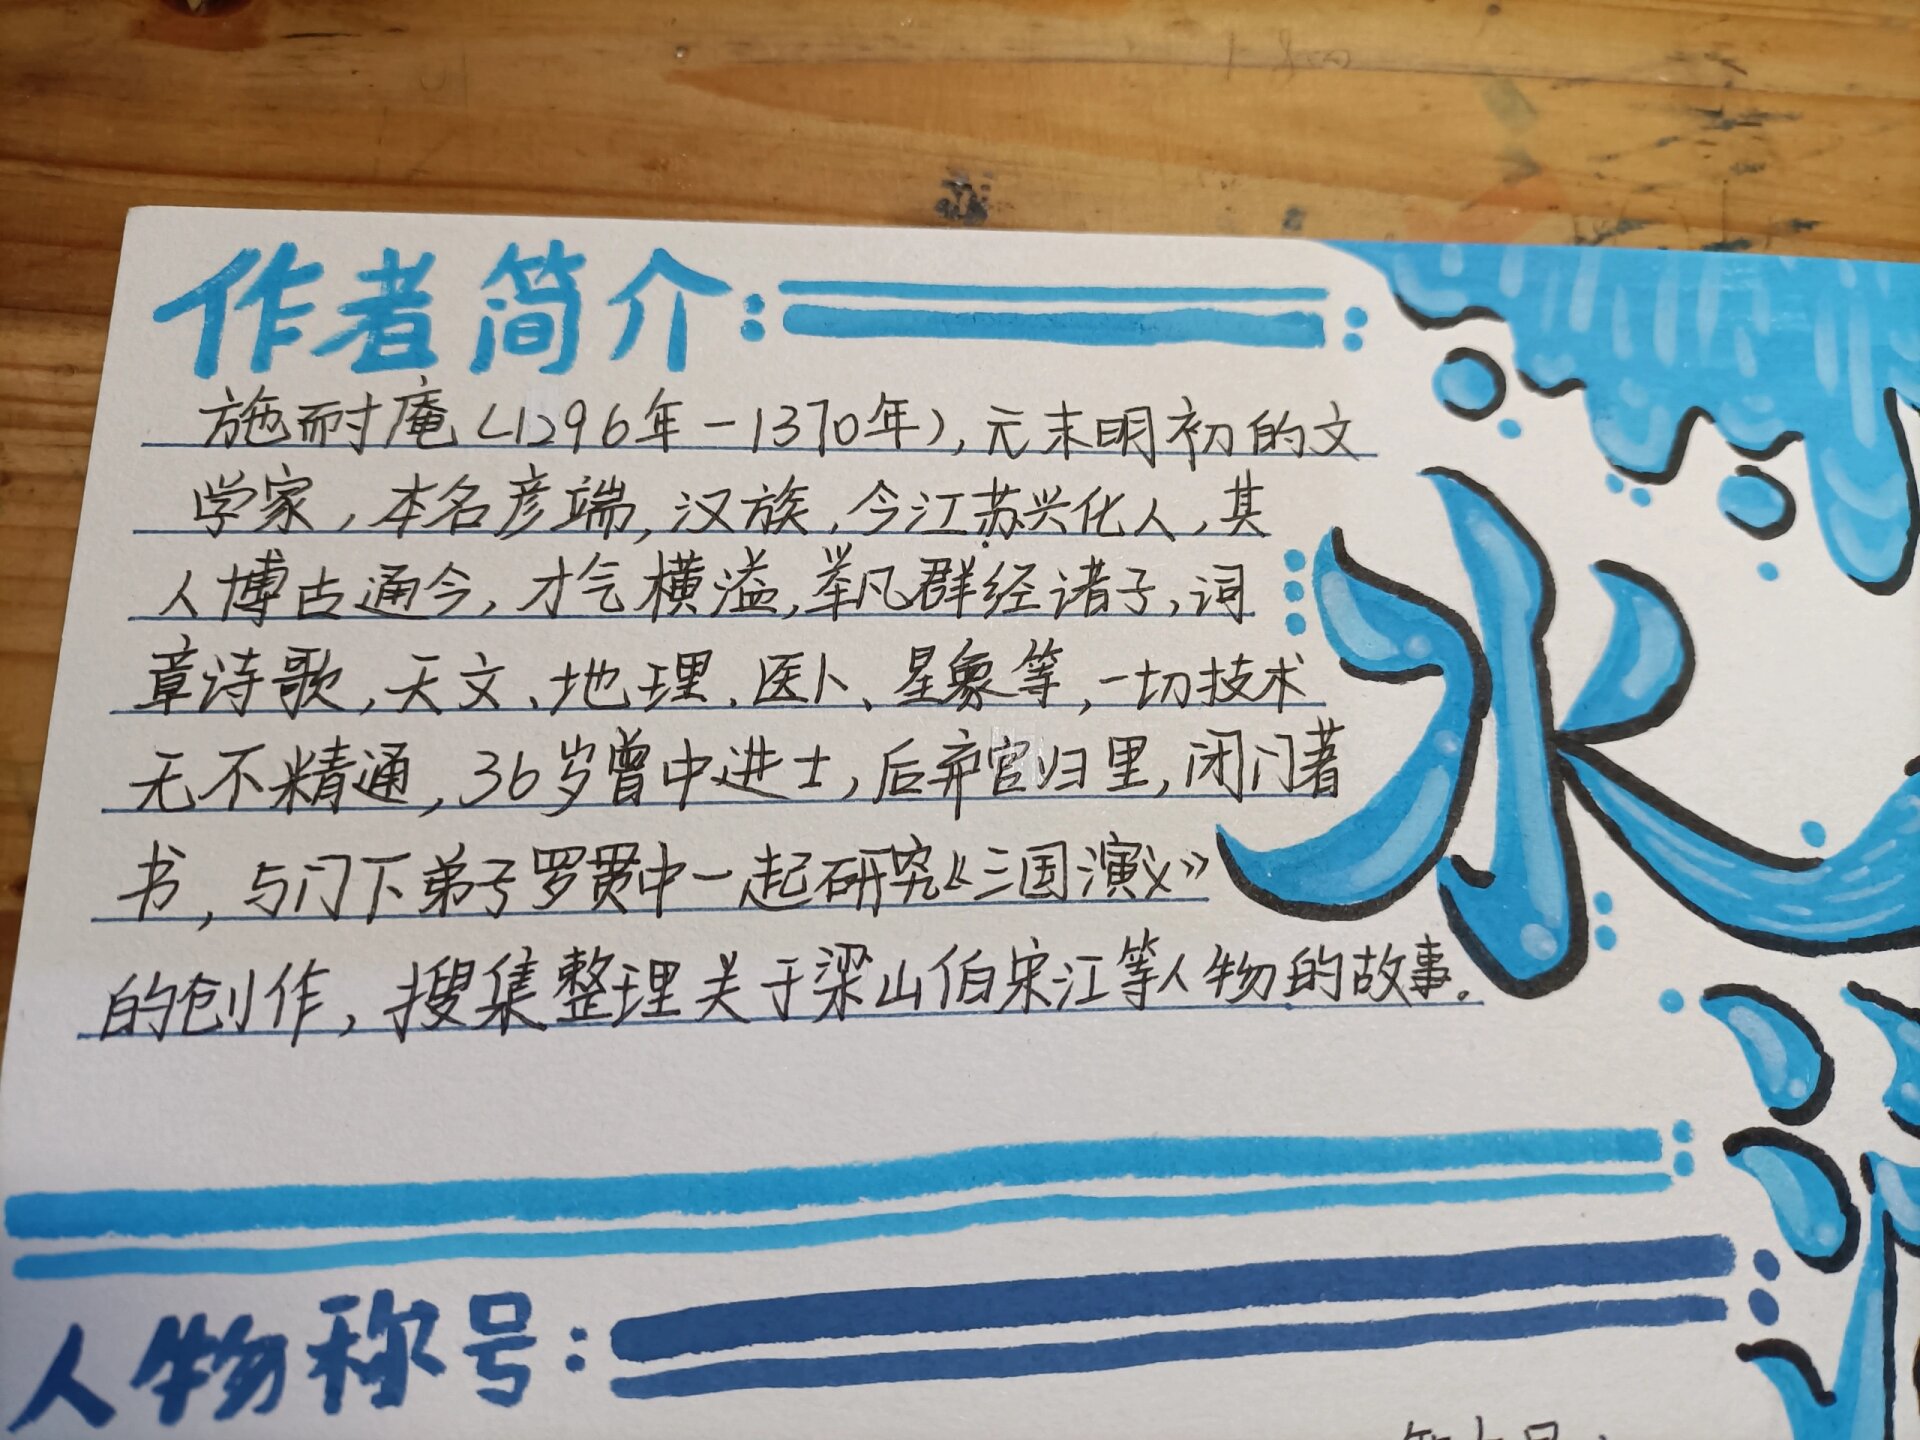 作者简介:
施耐庵(1296年-1370年),元末明初的文
学家,本名彦端,汉族,今江苏兴化人,其
人博古通今,才气横溢,举凡群经诸子,词
章诗歌,天文、地理、医卜、星象等,一切技术
无不精通,36岁曾中进士,后弃官归里,闭门著
书,与门下弟子罗贯中一起研究《三国演义》
的创作,搜集整理关于梁山伯宋江等人物的故事。
水
人物称号: